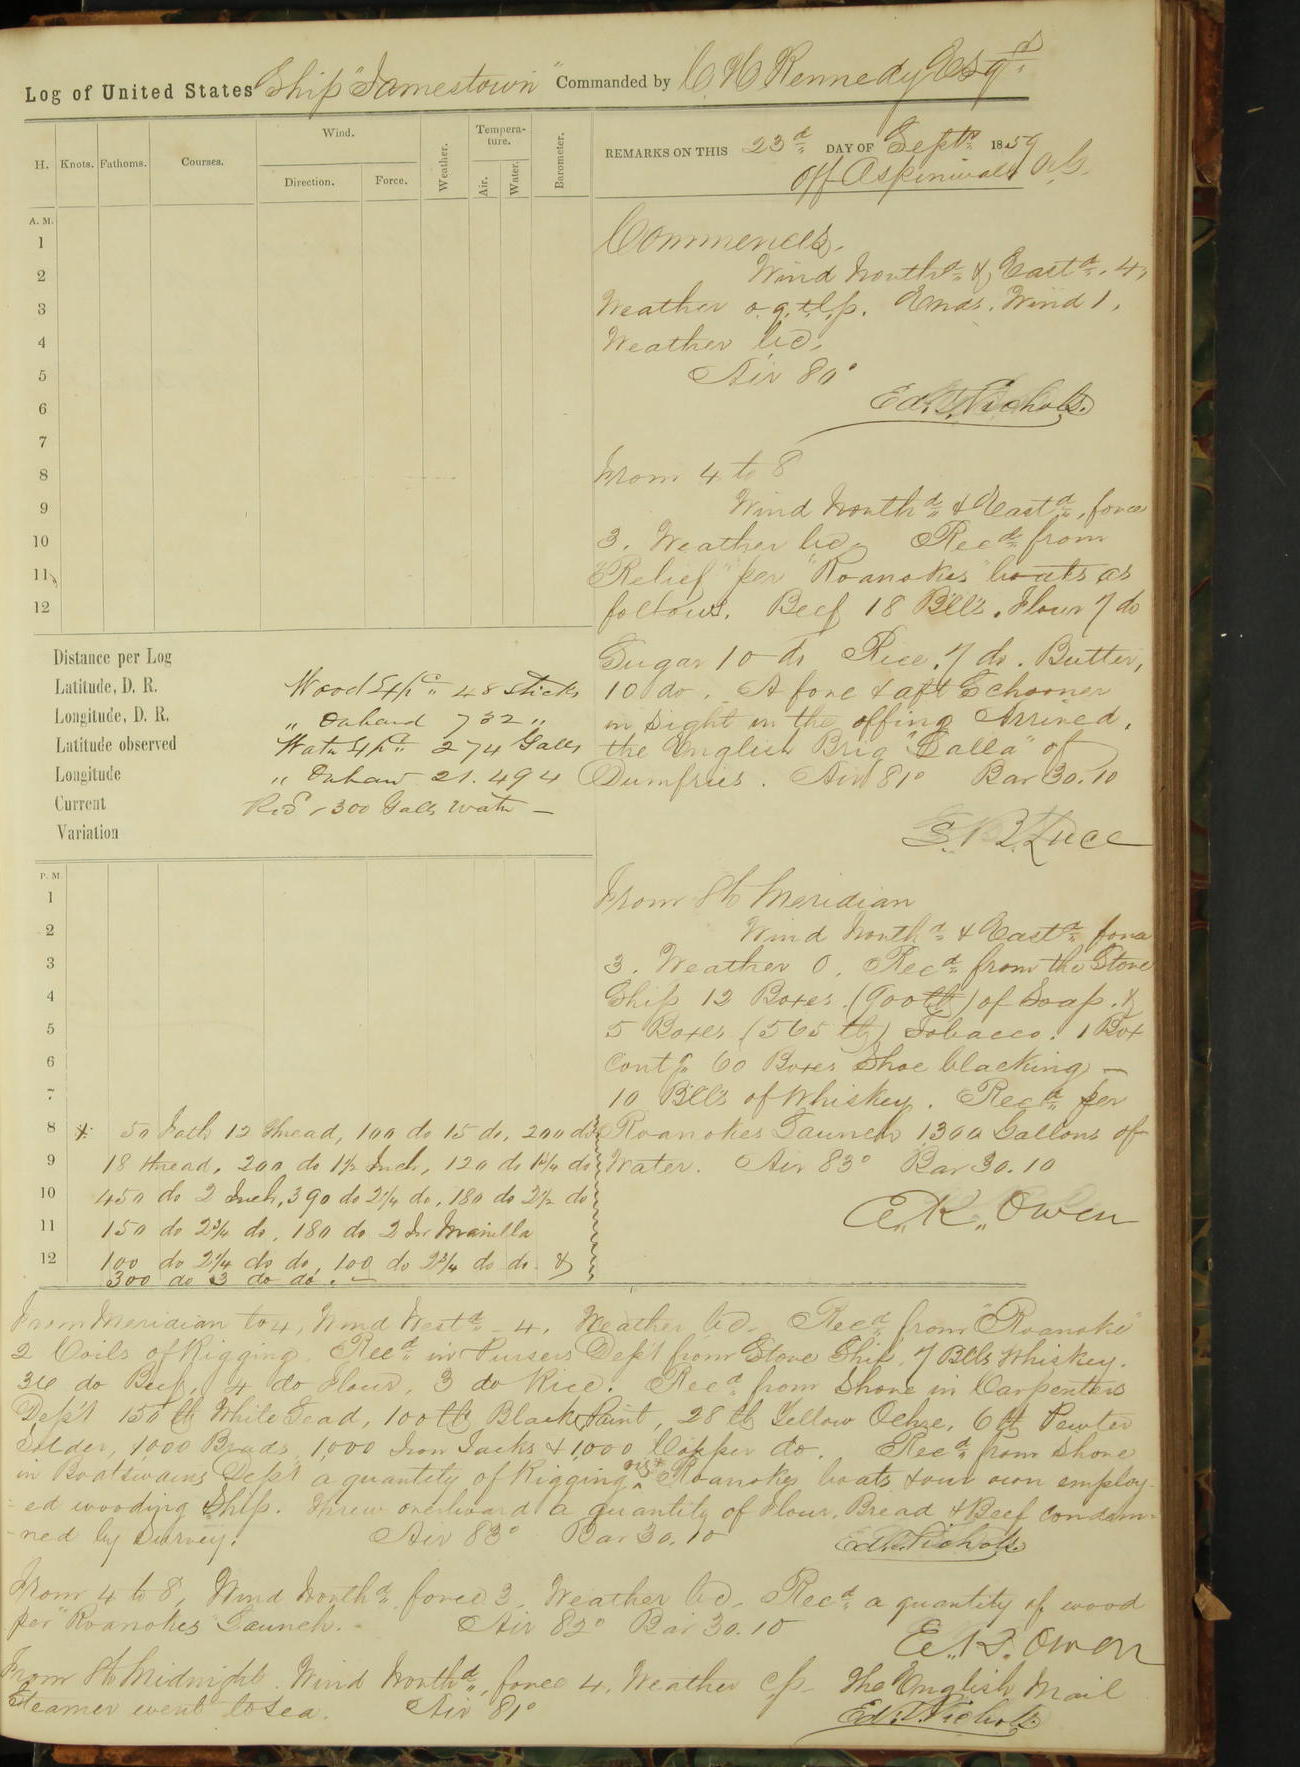 Log of United States Ship "Jamestown" Commanded by C H Kennedy Esqr.
H. Knots. Fathoms. Courses. Wind. Direction. Force. Weather. Tempera-ture. Air. Water. Barometer.
REMARKS ON THIS 23d DAY OF Septr 1859
Off Aspinwall N.G.
A. M.
1
2
3
4
5
6
7
8
9
10
11
12
Commences.
Wind Northd & Eastd. 4,
Weather o.q.t.l.p. Ends. Wind 1,
Weather b.c.
Air 80°
Ed. T. Nichols.
From 4 to 8
Wind Northd & Eastd, force
3. Weather b.c. Recd from
"Relief" per "Roanokes" boats as
follows. Beef 18 Bbls. Flour 7 do
Sugar 10 do Rice. 7 do. Butter,
10 do. A fore & aft Schooner
in sight in the offing Arrived.
the English Brig "Calla" of
Dumfries. Air 81° Bar 30.10
S. B. Luce
Distance per Log
Latitude, D. R.
Longitude, D. R.
Latitude observed
Longitude
Current
Variation
Wood Expd 48 sticks
" Onhand 732 "
Watr Expd 274 Galls
" Onhand 21.494
Recd 1300 Galls Watr —
From 8 to Meridian
Wind Northd & Eastd force
3. Weather O. Recd from the Store
Ship 12 Boxes (900 lb) of Soap. &
5 Boxes (565 lb) Tobacco. 1 Box
contg 60 Boxes Shoe blacking —
10 Bbls of Whiskey. Recd per
Roanokes Launch 1300 Gallons of
Water. Air 83° Bar 30.10
E. K. Owen
P. M.
1
2
3
4
5
6
7
8 50 Fath 12 thread, 100 do 15 do, 200 do
9 18 thread, 200 do 1½ Inch, 120 do 1¾ do
10 450 do 2 Inch, 390 do 2¼ do, 180 do 2½ do
11 150 do 2¾ do, 180 do 2 In Manilla
12 100 do 2¼ do do, 100 do 2¾ do do &
300 do 3 do do. —
From Meridian to 4, Wind Westd — 4. Weather b.c. Recd from "Roanoke"
2 Coils of Rigging. Recd in Pursers Dept from Store Ship, 7 Bbls Whiskey.
36 do Beef, 4 do Flour, 3 do Rice. Recd from Shore in Carpenters
Dept 150 lb White Lead, 100 lb Black Paint, 28 lb Yellow Ochre, 6 lb Pewter
Solder, 1000 Brads, 1,000 Iron Tacks & 1,000 Copper do. Recd from Shore
in Boatswains Dept a quantity of Rigging. Roanokes boats & our own employ-
ed wooding Ship. Threw overboard a quantity of Flour, Bread & Beef condem-
ned by Survey. Air 83° Bar 30.10 Ed. T. Nichols
From 4 to 8, Wind Northd force 3. Weather b.c. Recd a quantity of wood
per "Roanokes" Launch. Air 82° Bar 30.10 E. K. Owen
From 8 to Midnight. Wind Northd, force 4. Weather c.p. The English Mail
Steamer went to Sea. Air 81° Ed. T. Nichols